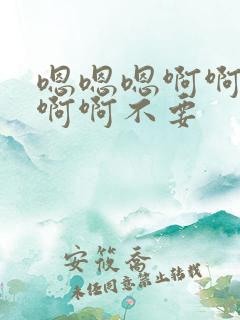 嗯嗯嗯啊啊
啊啊不要
安筱乔
未经同意禁止转载